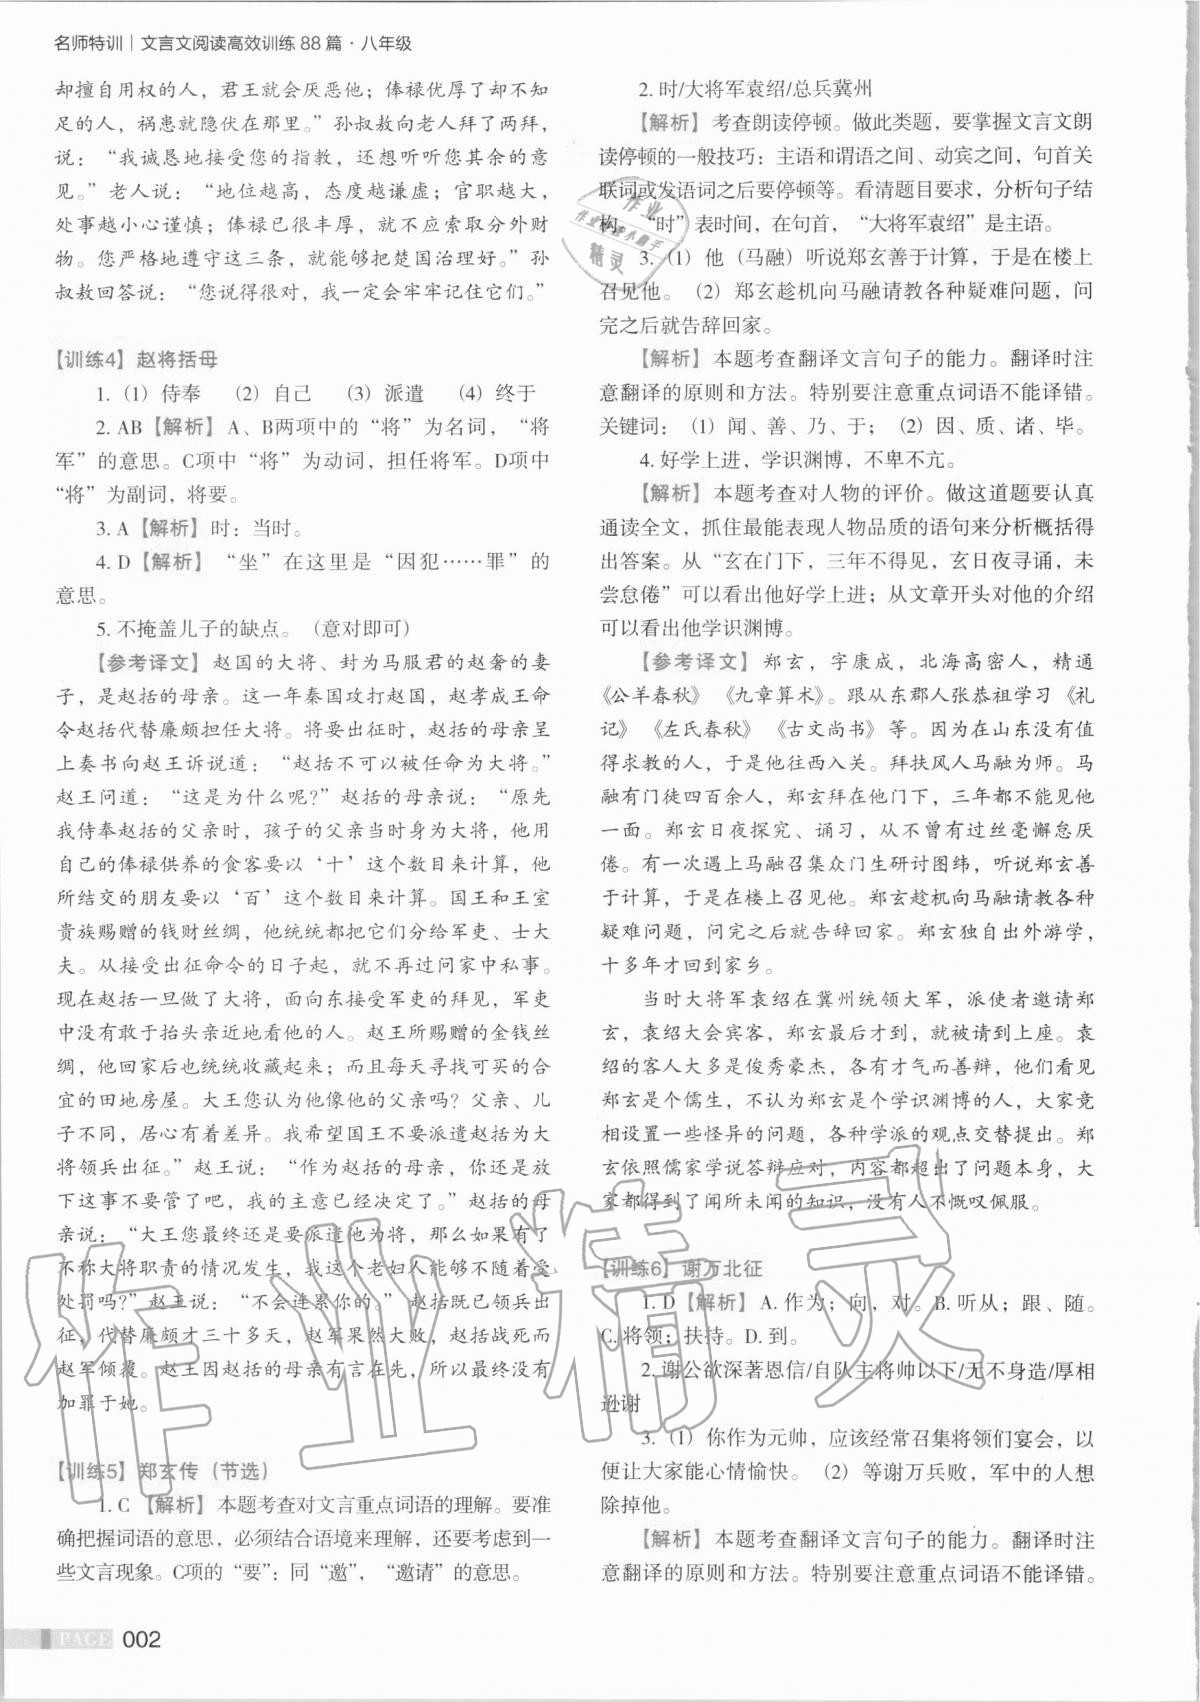 名师特训｜文言文阅读高效训练88篇·八年级
却擅自用权的人，君王就会厌恶他；俸禄优厚了却不知
足的人，祸患就隐伏在那里。”孙叔敖向老人拜了两拜，
说：“我诚恳地接受您的指教，还想听听您其余的意
见。”老人说：“地位越高，态度越谦虚；官职越大，
处事越小心谨慎；俸禄已很丰厚，就不应索取分外财
物。您严格地遵守这三条，就能够把楚国治理好。”孙
叔敖回答说：“您说得很对，我一定会牢牢记住它们。”
【训练4】赵将括母
1.（1）侍奉 （2）自己 （3）派遣 （4）终于
2. AB【解析】A、B两项中的“将”为名词，“将
军”的意思。C项中“将”为动词，担任将军。D项中
“将”为副词，将要。
3. A【解析】时：当时。
4. D【解析】“坐”在这里是“因犯……罪”的
意思。
5. 不掩盖儿子的缺点。（意对即可）
【参考译文】赵国的大将、封为马服君的赵奢的妻
子，是赵括的母亲。这一年秦国攻打赵国，赵孝成王命
令赵括代替廉颇担任大将。将要出征时，赵括的母亲呈
上奏书向赵王诉说道：“赵括不可以被任命为大将。”
赵王问道：“这是为什么呢?”赵括的母亲说：“原先
我侍奉赵括的父亲时，孩子的父亲当时身为大将，他用
自己的俸禄供养的食客要以‘十’这个数目来计算，他
所结交的朋友要以‘百’这个数目来计算。国王和王室
贵族赐赠的钱财丝绸，他统统都把它们分给军吏、士大
夫。从接受出征命令的日子起，就不再过问家中私事。
现在赵括一旦做了大将，面向东接受军吏的拜见，军吏
中没有敢于抬头亲近地看他的人。赵王所赐赠的金钱丝
绸，他回家后也统统收藏起来；而且每天寻找可买的合
宜的田地房屋。大王您认为他像他的父亲吗？父亲、儿
子不同，居心有着差异。我希望国王不要派遣赵括为大
将领兵出征。”赵王说：“作为赵括的母亲，你还是放
下这事不要管了吧，我的主意已经决定了。”赵括的母
亲说：“大王您最终还是要派遣他为将，那么如果有了
不称大将职责的情况发生，我这个老妇人能够不随着受
处罚吗?”赵王说：“不会连累你的。”赵括既已领兵出
征，代替廉颇才三十多天，赵军果然大败，赵括战死而
赵军倾覆。赵王因赵括的母亲有言在先，所以最终没有
加罪于她。
【训练5】郑玄传（节选）
1. C【解析】本题考查对文言重点词语的理解。要准
确把握词语的意思，必须结合语境来理解，还要考虑到一
些文言现象。C项的“要”：同“邀”，“邀请”的意思。
2. 时/大将军袁绍/总兵冀州
【解析】考查朗读停顿。做此类题，要掌握文言文朗
读停顿的一般技巧：主语和谓语之间、动宾之间，句首关
联词或发语词之后要停顿等。看清题目要求，分析句子结
构，“时”表时间，在句首，“大将军袁绍”是主语。
3.（1）他（马融）听说郑玄善于计算，于是在楼上
召见他。（2）郑玄趁机向马融请教各种疑难问题，问
完之后就告辞回家。
【解析】本题考查翻译文言句子的能力。翻译时注
意翻译的原则和方法。特别要注意重点词语不能译错。
关键词：（1）闻、善、乃、于；（2）因、质、诸、毕。
4. 好学上进，学识渊博，不卑不亢。
【解析】本题考查对人物的评价。做这道题要认真
通读全文，抓住最能表现人物品质的语句来分析概括得
出答案。从“玄在门下，三年不得见，玄日夜寻诵，未
尝怠倦”可以看出他好学上进；从文章开头对他的介绍
可以看出他学识渊博。
【参考译文】郑玄，字康成，北海高密人，精通
《公羊春秋》《九章算术》。跟从东郡人张恭祖学习《礼
记》《左氏春秋》《古文尚书》等。因为在山东没有值
得求教的人，于是他往西入关。拜扶风人马融为师。马
融有门徒四百余人，郑玄拜在他门下，三年都不能见他
一面。郑玄日夜探究、诵习，从不曾有过丝毫懈怠厌
倦。有一次遇上马融召集众门生研讨图纬，听说郑玄善
于计算，于是在楼上召见他。郑玄趁机向马融请教各种
疑难问题，问完之后就告辞回家。郑玄独自出外游学，
十多年才回到家乡。
当时大将军袁绍在冀州统领大军，派使者邀请郑
玄，袁绍大会宾客，郑玄最后才到，就被请到上座。袁
绍的客人大多是俊秀豪杰，各有才气而善辩，他们看见
郑玄是个儒生，不认为郑玄是个学识渊博的人，大家竞
相设置一些怪异的问题，各种学派的观点交替提出。郑
玄依照儒家学说答辩应对，内容都超出了问题本身，大
家都得到了闻所未闻的知识，没有人不慨叹佩服。
【训练6】谢万北征
1. D【解析】A. 作为；向，对。B. 听从；跟、随。
C. 将领；扶持。D. 到。
2. 谢公欲深著恩信/自队主将帅以下/无不身造/厚相
逊谢
3.（1）你作为元帅，应该经常召集将领们宴会，以
便让大家能心情愉快。（2）等谢万兵败，军中的人想
除掉他。
【解析】本题考查翻译文言句子的能力。翻译时注
意翻译的原则和方法。特别要注意重点词语不能译错。
PAGE 002
作业精灵